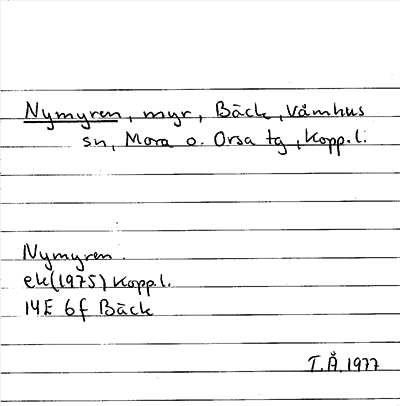 Nymyren, myr, Bäck, Våmhus
sn, Mora o. Orsa tg, Kopp.l.
Nymyren.
ek(1975) Kopp.l.
14E 6f Bäck
T.Å.1977